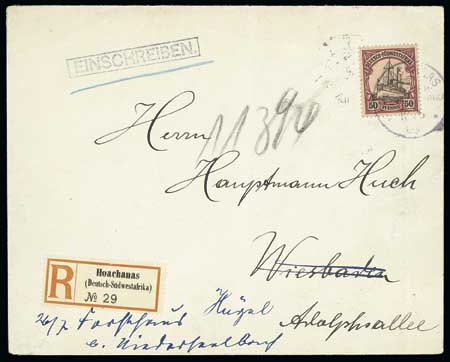 EINSCHREIBEN.
DEUTSCH-SÜDWESTAFRIKA
50 PFENNIG 50
11390
Herrn
Hauptmann Huch
Wiesbaden
Adolphsallee
R
Hoachanas
(Deutsch-Südwestafrika)
№ 29
26/7 Forsthaus Hügel
b. Niederseelbach